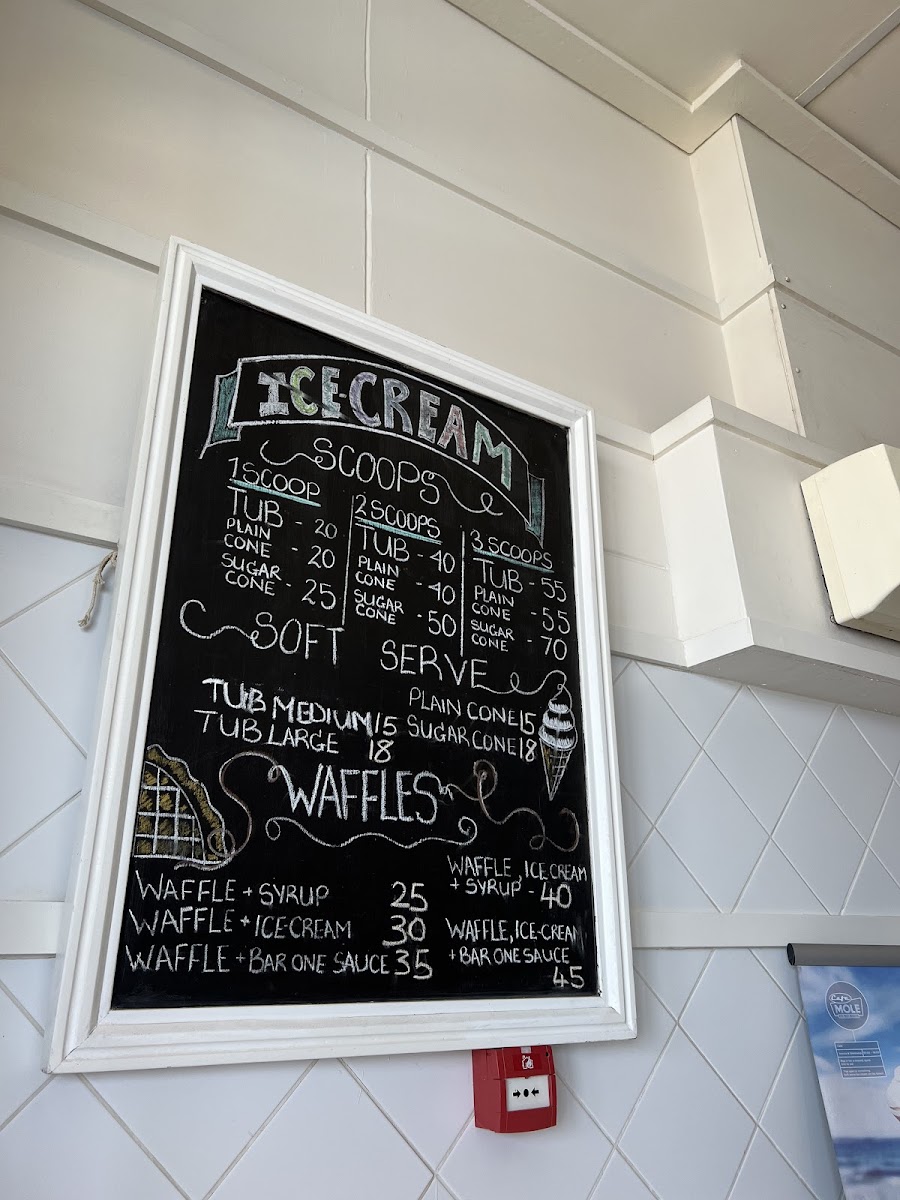 ICE-CREAM
SCOOPS
1 SCOOP
TUB - 20
PLAIN
CONE - 20
SUGAR
CONE - 25
2 SCOOPS
TUB - 40
PLAIN
CONE - 40
SUGAR
CONE - 50
3 SCOOPS
TUB - 55
PLAIN
CONE - 55
SUGAR
CONE - 70
SOFT SERVE
TUB MEDIUM 15
TUB LARGE 18
PLAIN CONE 15
SUGAR CONE 18
WAFFLES
WAFFLE + SYRUP 25
WAFFLE + ICE-CREAM 30
WAFFLE + BAR ONE SAUCE 35
WAFFLE, ICE CREAM
+ SYRUP - 40
WAFFLE, ICE-CREAM
+ BAR ONE SAUCE
45
Café
MOLE